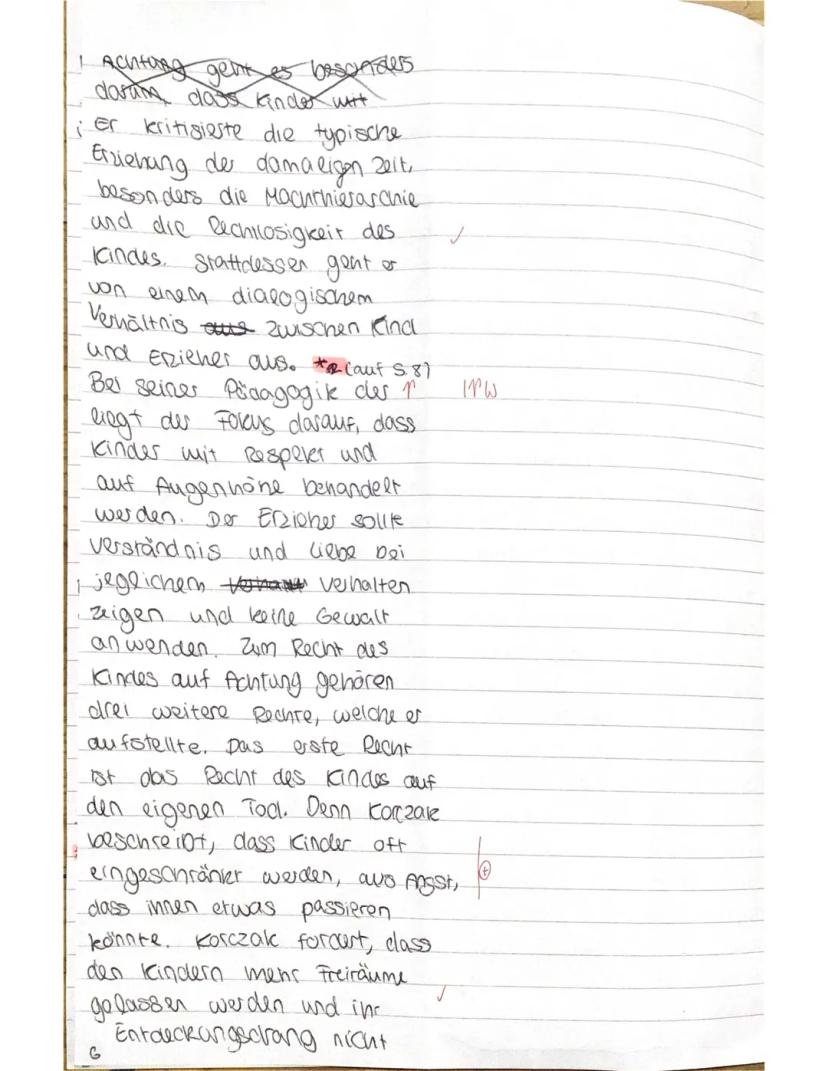 Achtung geht es besonders
darum, dass Kinder mit
Er kritisierte die typische
Erziehung der damaligen Zeit,
besonders die Machthierarchie
und die Rechtlosigkeit des
Kindes. Stattdessen geht er
von einem dialogischem
Verhältnis aus zwischen Kind
und Erzieher aus. *2 (auf S.8)
Bei seiner Pädagogik der Γ
liegt der Fokus darauf, dass
Kinder mit Respekt und
auf Augenhöhe behandelt
werden. Der Erzieher sollte
Verständnis und Liebe bei
jeglichem Verhalten
zeigen und keine Gewalt
anwenden. Zum Recht des
Kindes auf Achtung gehören
drei weitere Rechte, welche er
aufstellte. Das erste Recht
ist das Recht des Kindes auf
den eigenen Tod. Denn Korczak
beschreibt, dass Kinder oft
eingeschränkt werden, aus Angst,
dass ihnen etwas passieren
könnte. Korczak fordert, dass
den Kindern mehr Freiräume
gelassen werden und ihr
Entdeckungsdrang nicht
6